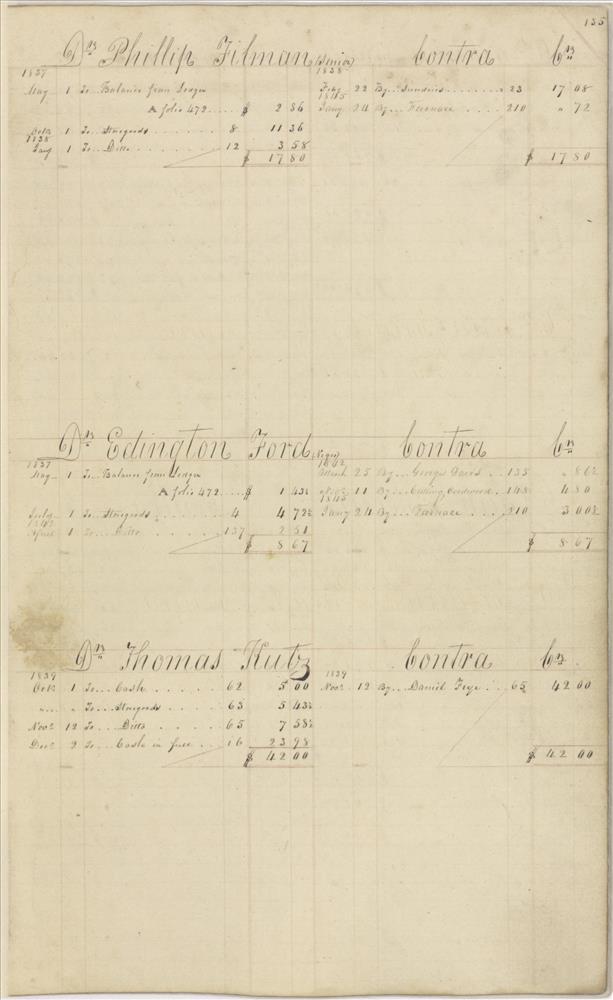 155
Dr. Phillip Filman (Senior) Contra Cr.
1837 1838
May 1 To Balance from Ledger Feby 22 By Sundries 23 17 08
A folio 472 $ 2 86 1845 Jany 24 By Furnace 210 " 72
Octr 1 To Storegoods 8 11 36
1838
Jany 1 To Ditto 12 3 58
$ 17 80 $ 17 80
Dr. Edington Ford (Negro) Contra Cr.
1837 1842
May 1 To Balance from Ledger March 25 By George Davis 135 " 86½
A folio 472 $ 1 43½ 11 By Cutting Cordwood 148 4 80
July 1 To Storegoods 4 4 72½ 1845 Jany 24 By Furnace 210 3 00½
1842
April 1 To Ditto 137 2 51
$ 8 67 $ 8 67
Dr. Thomas Kutz Contra Cr.
1839 1839
Octr 1 To Cash 62 5 00 Novr 12 By Daniel Fege 65 42 00
" " To Storegoods 63 5 43½
Novr 12 To Ditto 65 7 58½
Decr 2 To Cash in full 16 23 98
$ 42 00 $ 42 00